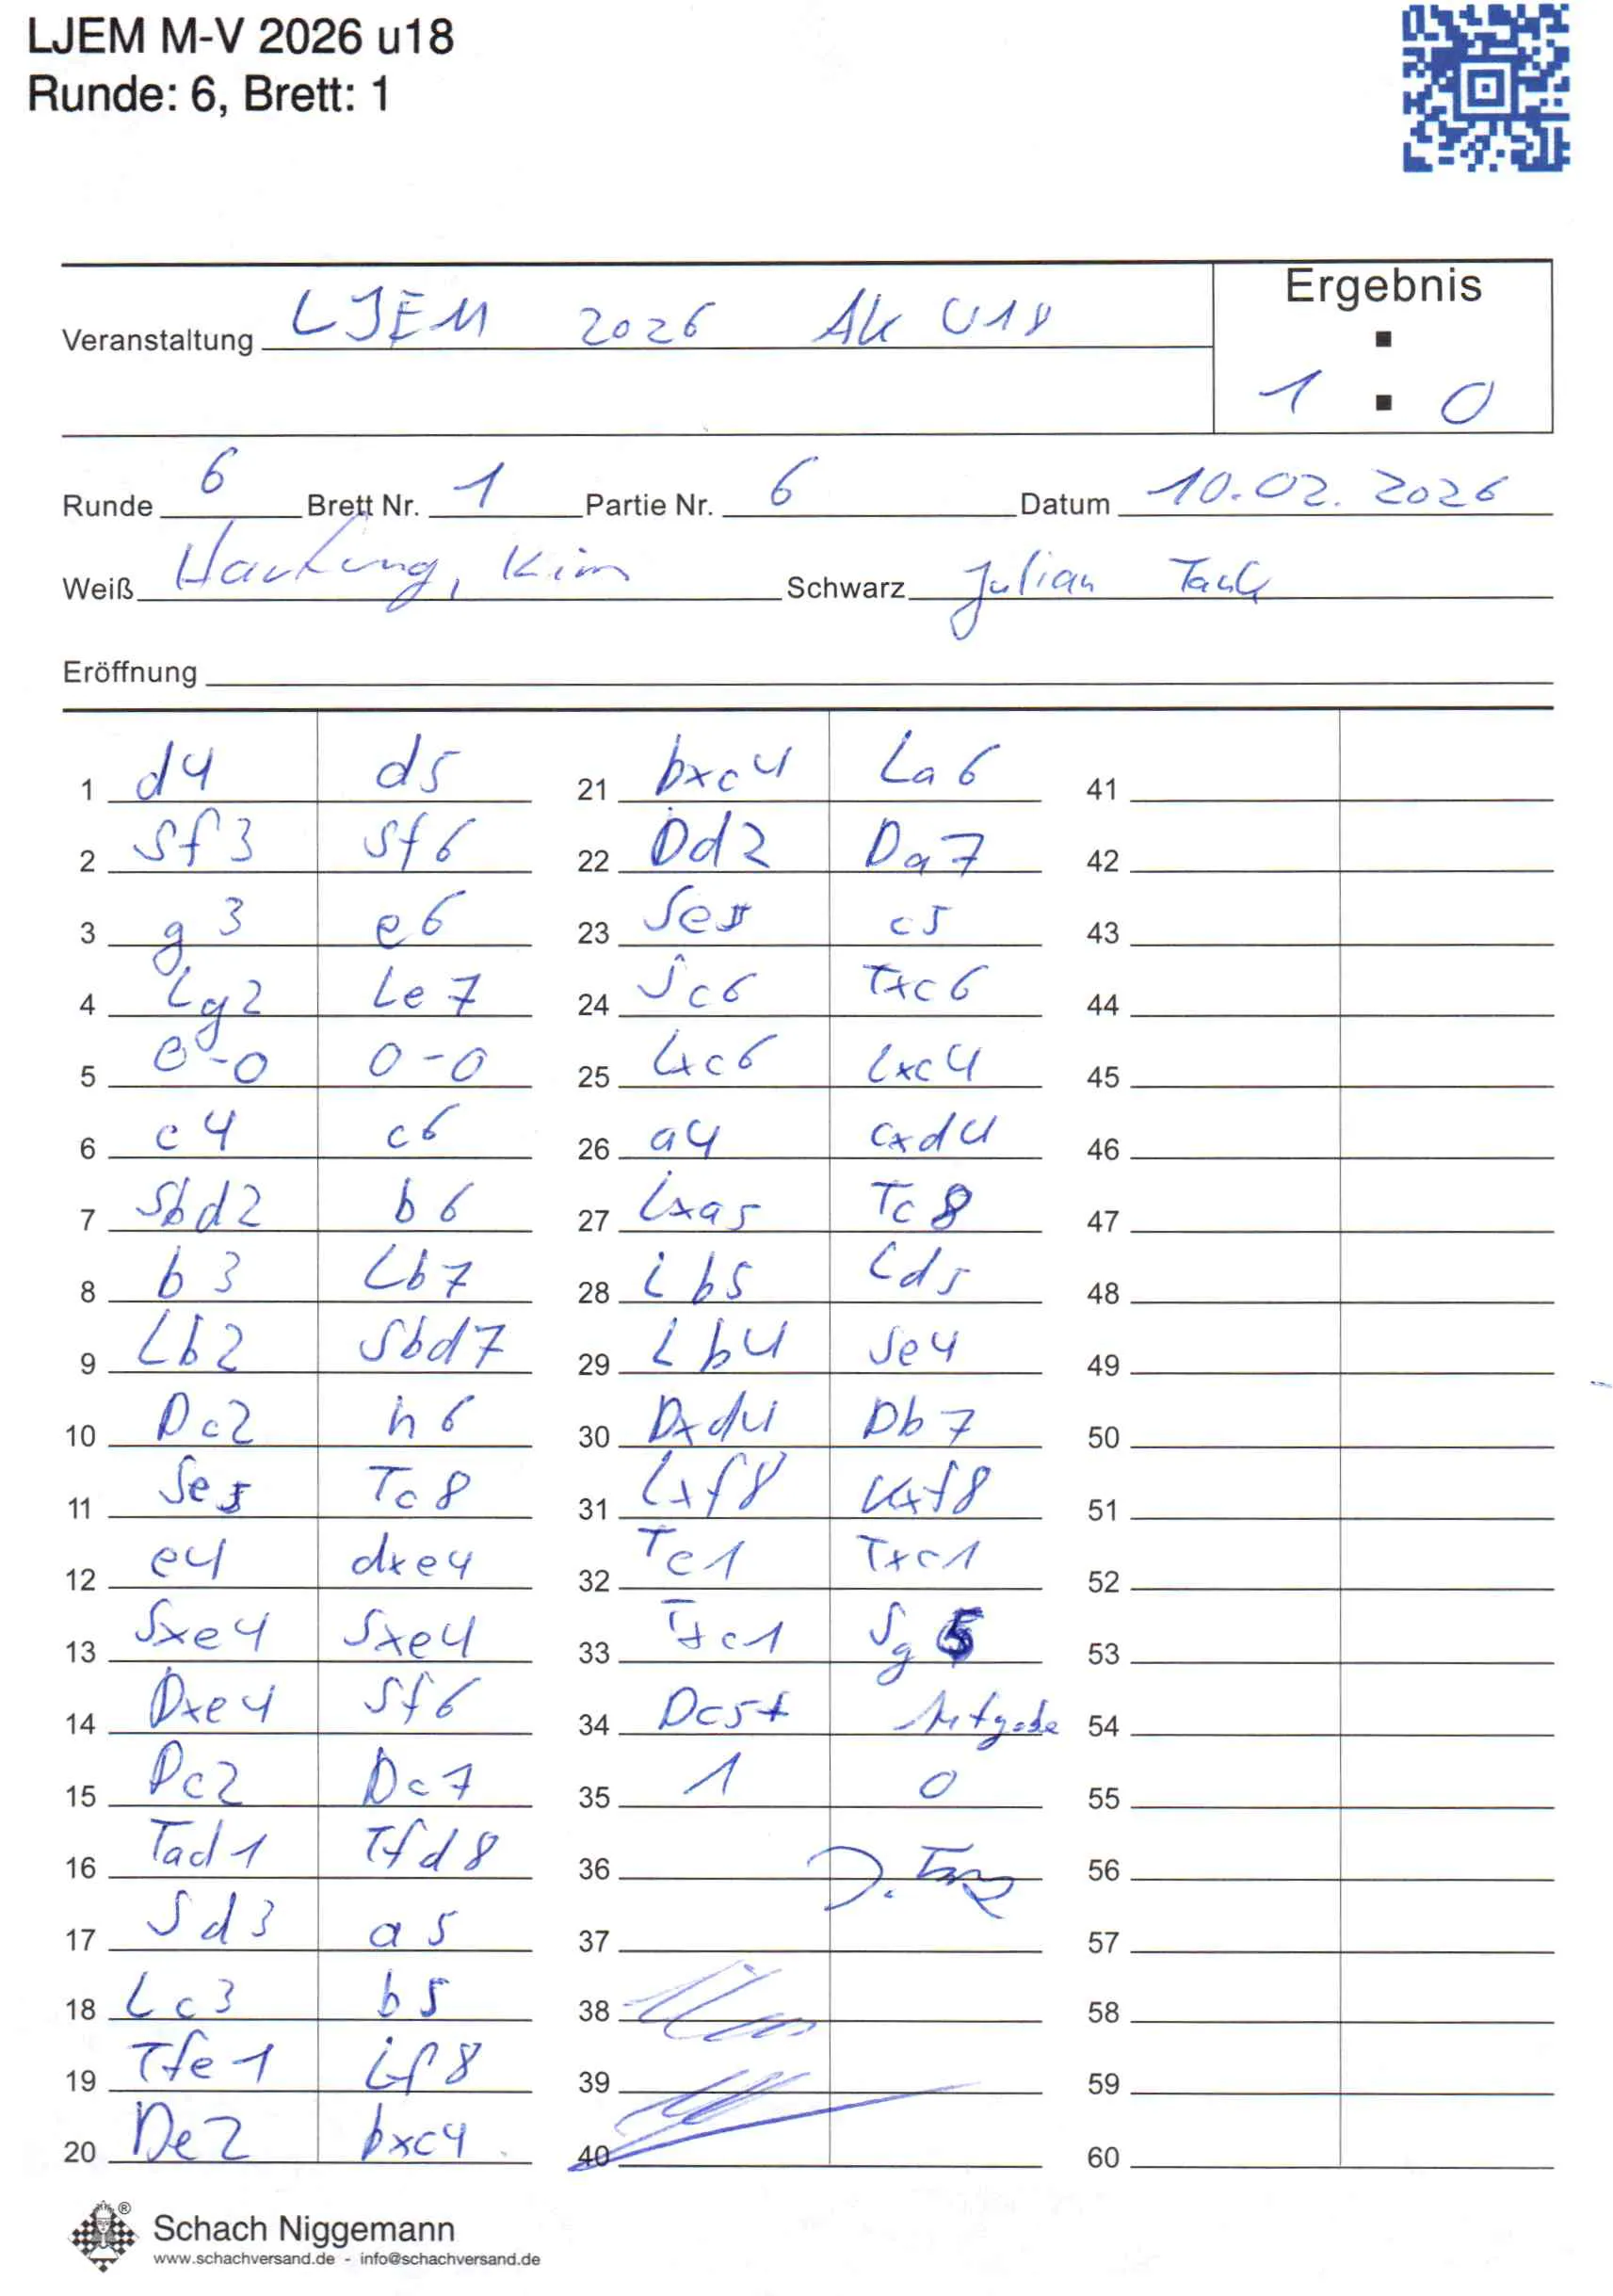 LJEM M-V 2026 u18
Runde: 6, Brett: 1
Ergebnis
Veranstaltung LJEM 2026 AK U18
1 : 0
Runde 6 Brett Nr. 1 Partie Nr. 6 Datum 10.02.2026
Weiß Hartung, Kim Schwarz Julian Tank
Eröffnung
1 d4 d5 21 bxc4 La6 41
2 Sf3 Sf6 22 Dd2 Da7 42
3 g3 e6 23 Se5 c5 43
4 Lg2 Le7 24 Sc6 Txc6 44
5 0-0 0-0 25 Lxc6 Lxc4 45
6 c4 c6 26 a4 cxd4 46
7 Sbd2 b6 27 Lxa5 Tc8 47
8 b3 Lb7 28 Lb5 Ld5 48
9 Lb2 Sbd7 29 Lb4 Se4 49
10 Dc2 h6 30 Dxd4 Db7 50
11 Se5 Tc8 31 Lxf8 Kxf8 51
12 e4 dxe4 32 Tc1 Txc1 52
13 Sxe4 Sxe4 33 Txc1 Sg5 53
14 Dxe4 Sf6 34 Dc5+ Aufgabe 54
15 Dc2 Dc7 35 1 0 55
16 Tad1 Tfd8 36 J. Tank 56
17 Sd3 a5 37 57
18 Lc3 b5 38 58
19 Tfe1 Lf8 39 59
20 De2 bxc4 40 60
Schach Niggemann
www.schachversand.de - info@schachversand.de